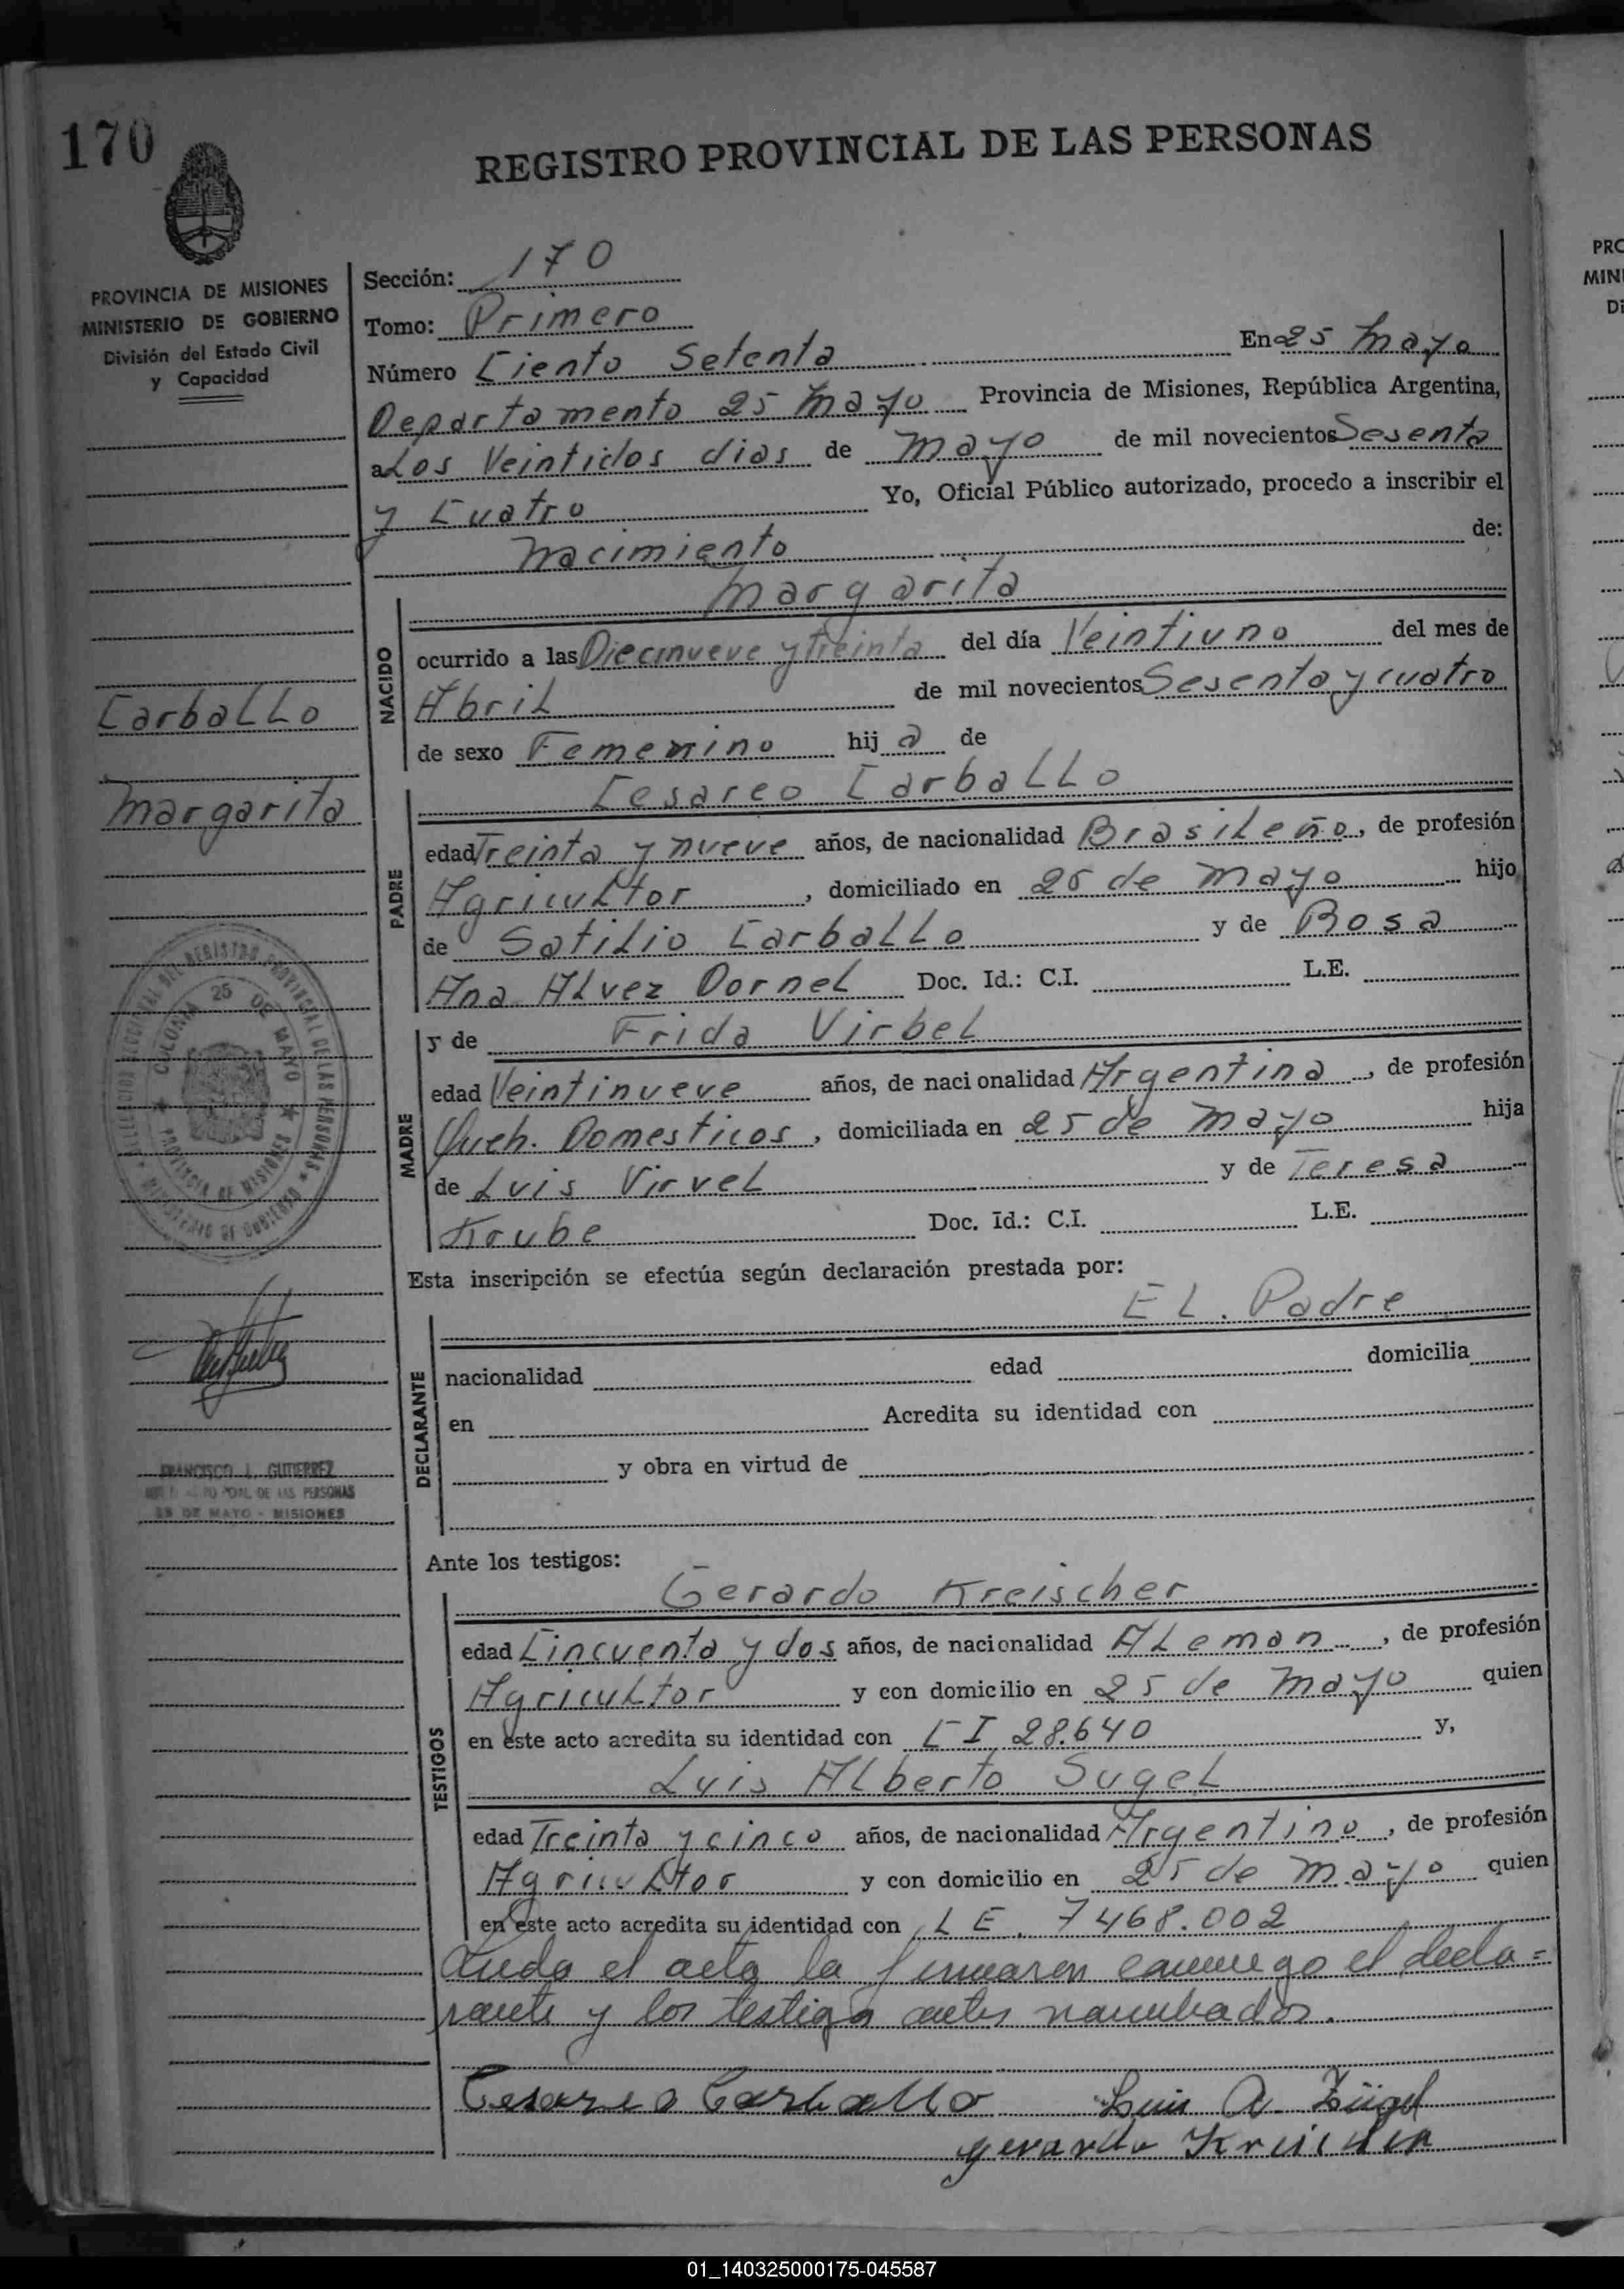 170
REGISTRO PROVINCIAL DE LAS PERSONAS
PROVINCIA DE MISIONES
MINISTERIO DE GOBIERNO
División del Estado Civil
y Capacidad
Carballo
Margarita
COLONIA 25 DE MAYO
PROVINCIA DE MISIONES
FRANCISCO L. GUTIERREZ
DE LAS PERSONAS
25 DE MAYO - MISIONES
Sección: 170
Tomo: Primero
Número Ciento Setenta En 25 Mayo
Departamento 25 Mayo Provincia de Misiones, República Argentina,
a Los Veintidos dias de Mayo de mil novecientos Sesenta
y Cuatro Yo, Oficial Público autorizado, procedo a inscribir el
Nacimiento de:
Margarita
NACIDO
ocurrido a las Diecinueve y treinta del día Veintiuno del mes de
Abril de mil novecientos Sesenta y cuatro
de sexo Femenino hij a de
Cesareo Carballo
PADRE
edad Treinta y nueve años, de nacionalidad Brasileño, de profesión
Agricultor, domiciliado en 25 de Mayo hijo
de Satilio Carballo y de Rosa
Ana Alvez Dornel Doc. Id.: C.I. L.E.
y de Frida Virbel
MADRE
edad Veintinueve años, de nacionalidad Argentina, de profesión
Queh. Domesticos, domiciliada en 25 de Mayo hija
de Luis Virvel y de Teresa
Krube Doc. Id.: C.I. L.E.
Esta inscripción se efectúa según declaración prestada por:
EL. Padre
DECLARANTE
nacionalidad edad domicilia
en Acredita su identidad con
y obra en virtud de
Ante los testigos:
Gerardo Kreischer
TESTIGOS
edad Cincuenta y dos años, de nacionalidad Aleman, de profesión
Agricultor y con domicilio en 25 de Mayo quien
en este acto acredita su identidad con C I 28.640 y,
Luis Alberto Sugel
edad Treinta y cinco años, de nacionalidad Argentino, de profesión
Agricultor y con domicilio en 25 de Mayo quien
en este acto acredita su identidad con L E. 7468.002
el acta la firmaron conmigo el decla=
rante y los testigos antes nombrados.
Cesareo Carballo Luis A. Zügel
Gerardo Kreischer
PRO
MINI
Di
01_140325000175-045587